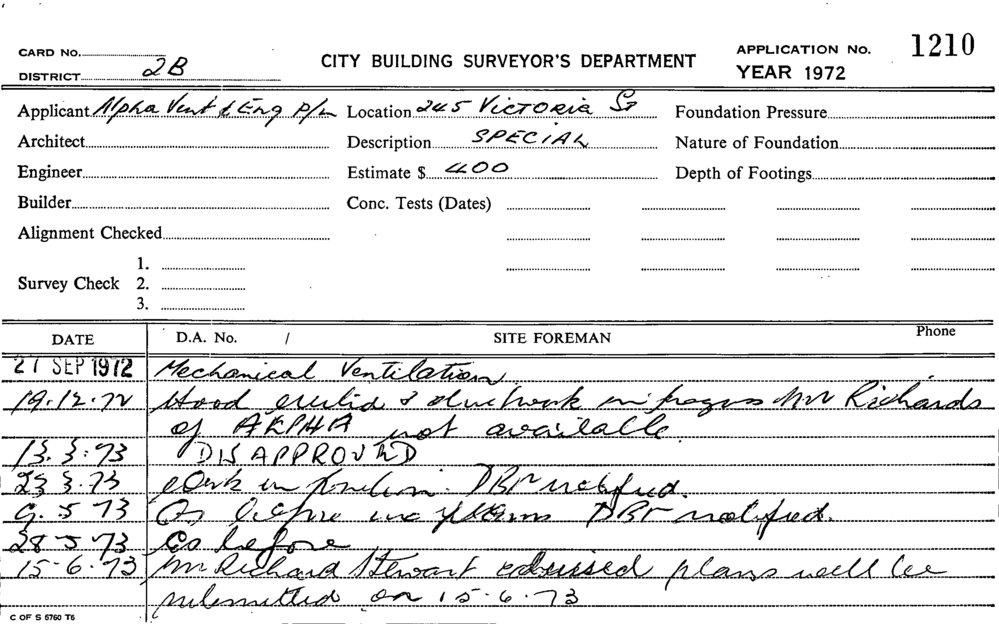 CARD NO.
DISTRICT 2B
CITY BUILDING SURVEYOR'S DEPARTMENT
APPLICATION NO. 1210
YEAR 1972
Applicant Alpha Vent & Eng P/L Location 245 VICTORIA ST Foundation Pressure
Architect Description SPECIAL Nature of Foundation
Engineer Estimate $ 400 Depth of Footings
Builder Conc. Tests (Dates)
Alignment Checked
1.
Survey Check 2.
3.
DATE D.A. No. / SITE FOREMAN Phone
27 SEP 1972 Mechanical Ventilation
19.12.72 Hood erected & ductwork in progress Mr Richards
of ALPHA not available.
13.3.73 DISAPPROVED
23 3.73 Work in position. notified.
9.5 73 As before notified.
28 5 73 as before
15-6.73 Mr Richard Stewart advised plans will be
submitted on 15.6.73
C OF S 5760 T6